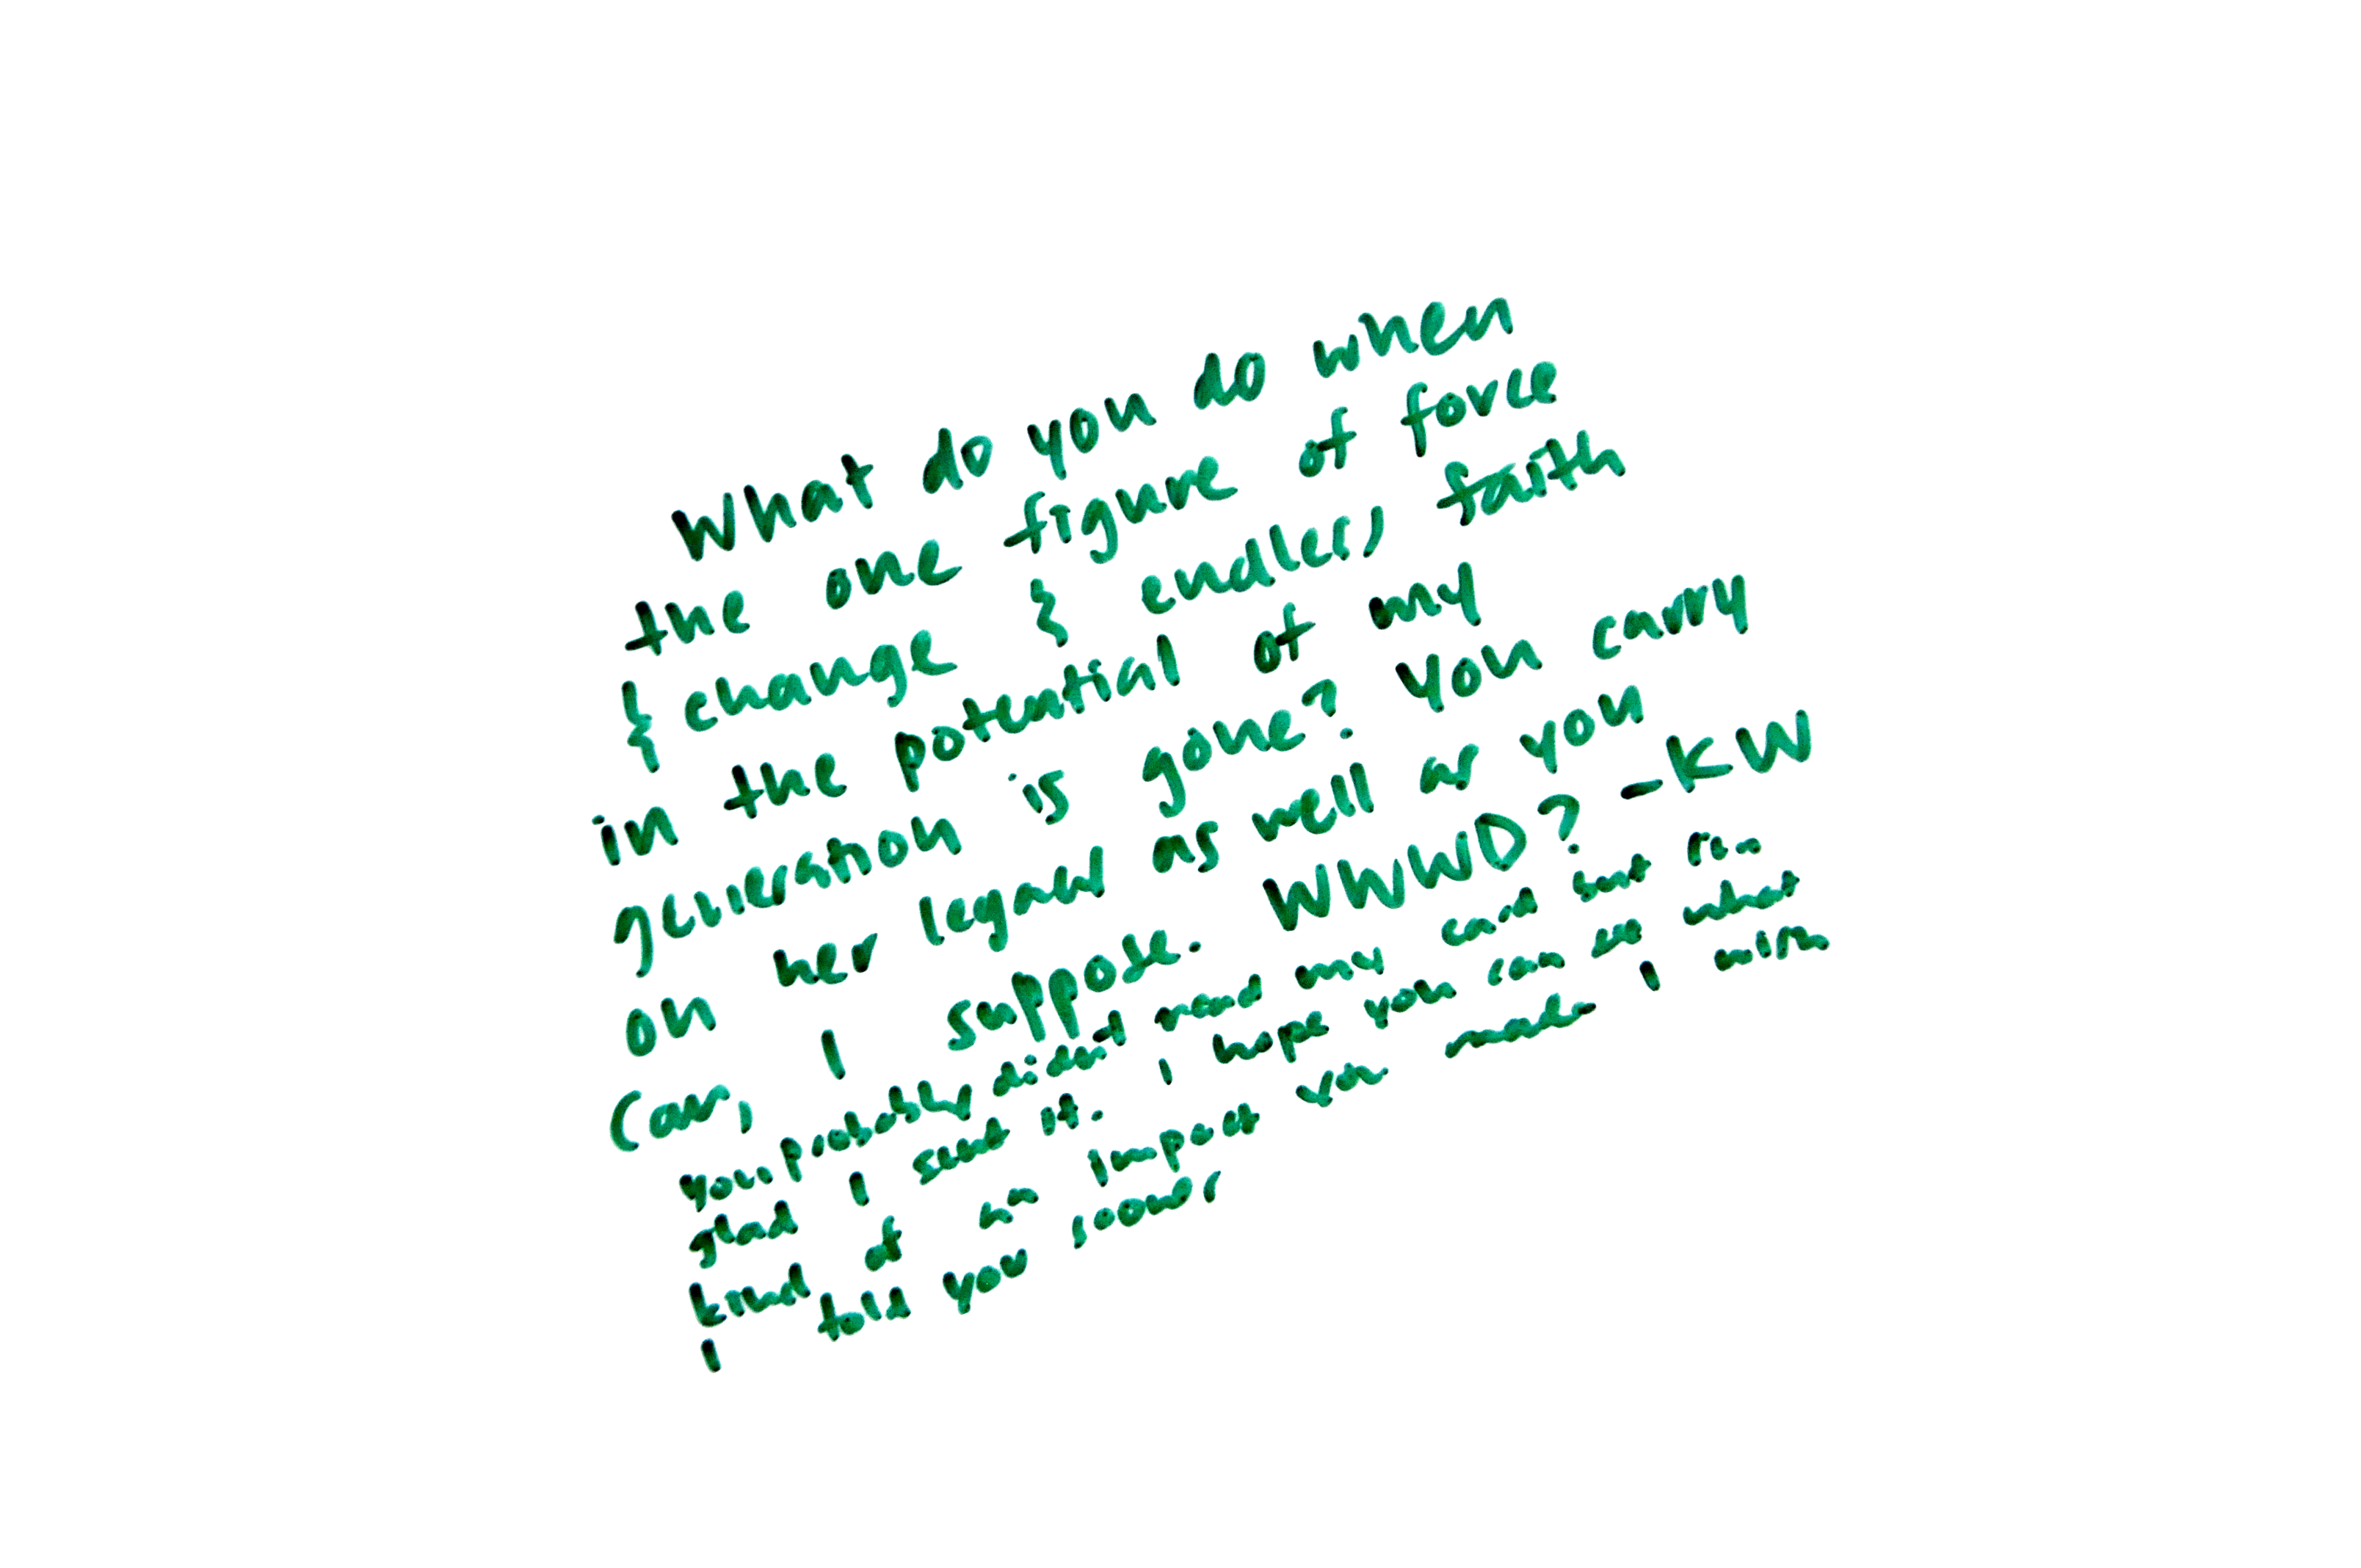 What do you do when
the one figure of force
& change & endless faith
in the potential of my
generation is gone? You carry
on her legacy as well as you
can, I suppose. WWWD? -KW
you probably didn't read my card but I'm
glad I sent it. I hope you can see what
kind of an impact you made I wish
I told you sooner